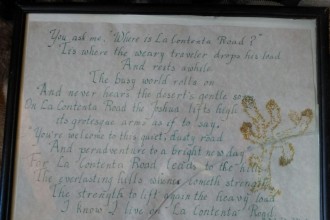 You ask me, "Where is La Contenta Road?"
Tis where the weary traveler drops his load
And rests awhile
The busy world rolls on
And never hears the desert's gentle song
On La Contenta Road the Joshua lifts high
its grotesque arms as if to say,
You're welcome to this quiet, dusty road
And peradventure to a bright new day
For La Contenta Road leads to the hills
The everlasting hills whence cometh strength
The strength to lift again the heavy load
I know, I live on "La Contenta" Road